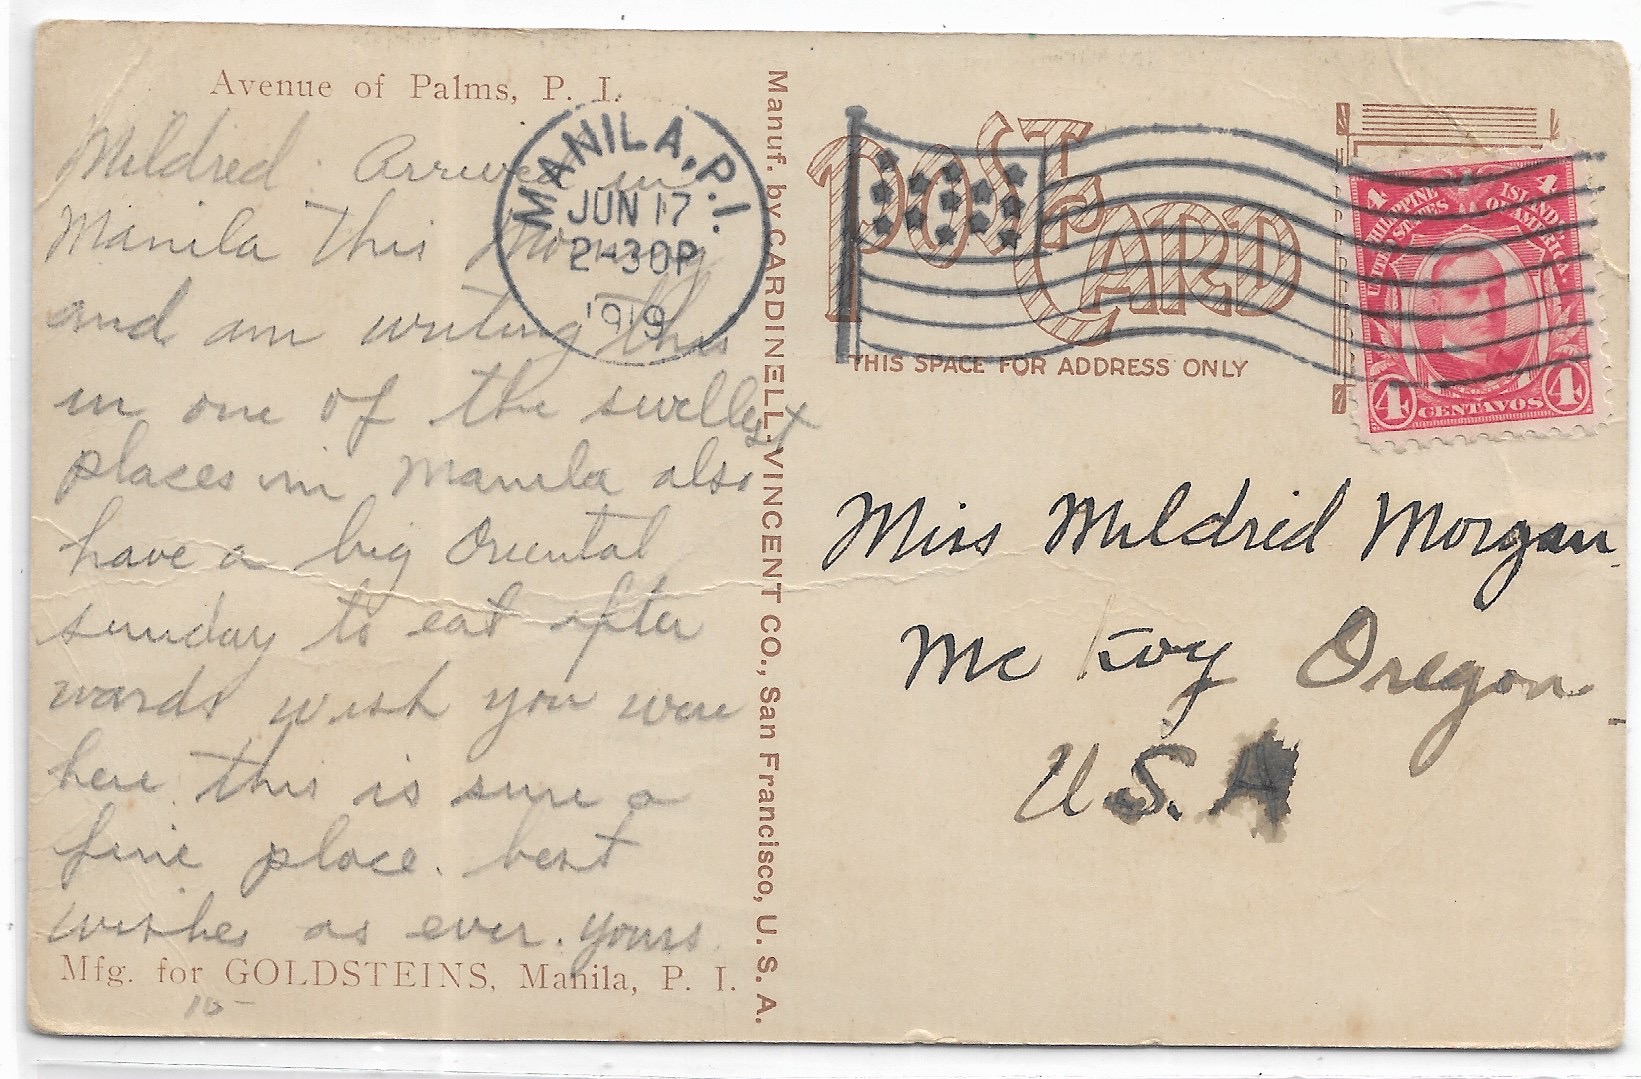 Avenue of Palms, P. I.
Mildred. Arrived in
Manila this morning
and am writing this
in one of the swellest
places in Manila also
have a big Oriental
sunday to eat after
wards wish you were
here. this is sure a
fine place. best
wishes as ever. yours
Mfg. for GOLDSTEINS, Manila, P. I.
15-
Manuf. by CARDINELL-VINCENT CO., San Francisco, U. S. A.
MANILA, P.I.
JUN 17
2-30P
1919
POST CARD
THIS SPACE FOR ADDRESS ONLY
4 4
PHILIPPINE ISLANDS
UNITED STATES OF AMERICA
4 CENTAVOS 4
Miss Mildred Morgan
Mc Oregon
U.S.A